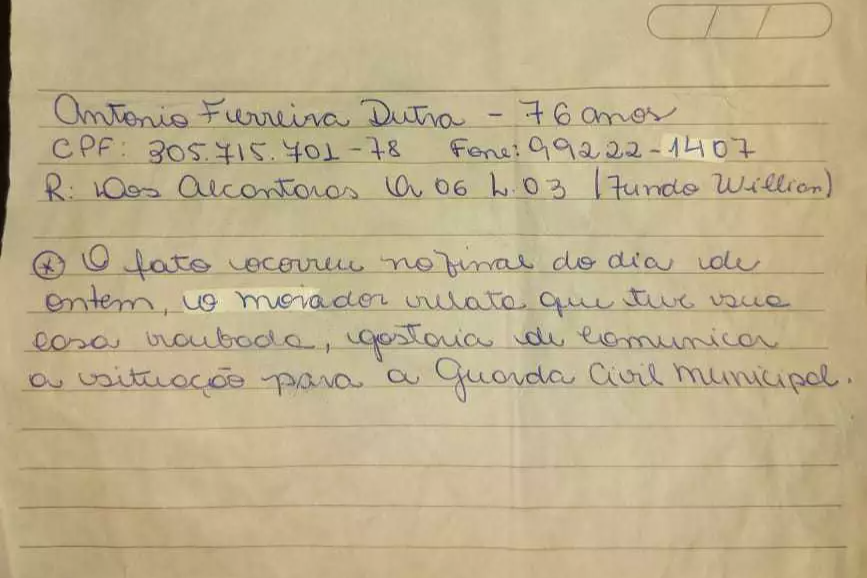 Antonio Ferreira Dutra - 76 anos
CPF: 305.715.701-78 Fone: 99222-1407
R: Dos Alcantaras Q 06 L. 03 (Fundo Willian)
* O fato ocorreu no final do dia de
ontem, o morador relata que teve sua
casa roubada, gostaria de comunicar
a situação para a Guarda Civil Municipal.